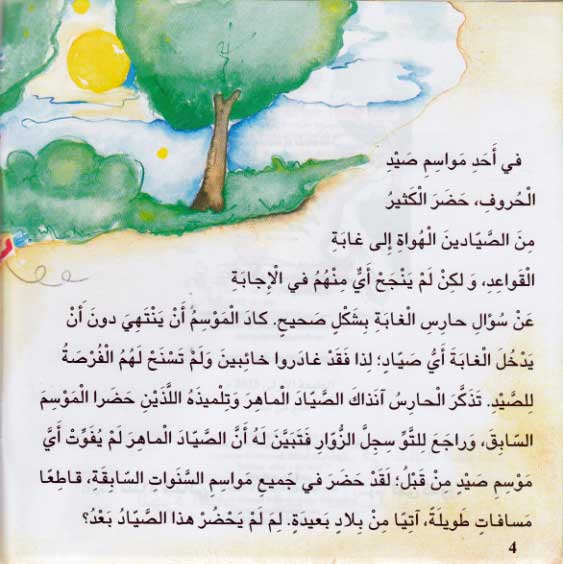 في أَحَدِ مَواسِمِ صَيْدِ
الْحُروفِ، حَضَرَ الْكَثيرُ
مِنَ الصَّيّادينَ الْهُواةِ إِلى غابَةِ
الْقَواعِدِ، وَ لكِنْ لَمْ يَنْجَحْ أَيٌّ مِنْهُمُ في الْإِجابَةِ
عَنْ سُؤالِ حارِسِ الْغابَةِ بِشَكْلٍ صَحيحٍ. كادَ الْمَوْسِمُ أَنْ يَنْتَهِيَ دونَ أَنْ
يَدْخُلَ الْغابَةَ أَيُّ صَيّادٍ؛ لِذا فَقَدْ غادَروا خائِبينَ وَلَمْ تَسْنَحْ لَهُمُ الْفُرْصَةُ
لِلصَّيْدِ. تَذَكَّرَ الْحارِسُ آنَذاكَ الصَّيّادَ الْماهِرَ وَتِلْميذَهُ اللَّذَيْنِ حَضَرا الْمَوْسِمَ
السّابِقَ، وَراجَعَ لِلتَّوِّ سِجِلَّ الزُّوّارِ فَتَبَيَّنَ لَهُ أَنَّ الصَّيّادَ الْماهِرَ لَمْ يُفَوِّتْ أَيَّ
مَوْسِمِ صَيْدٍ مِنْ قَبْلُ؛ لَقَدْ حَضَرَ في جَميعِ مَواسِمِ السَّنَواتِ السّابِقَةِ، قاطِعًا
مَسافاتٍ طَويلَةً، آتِيًا مِنْ بِلادٍ بَعيدَةٍ. لِمَ لَمْ يَحْضُرْ هذا الصَّيّادُ بَعْدُ؟
4